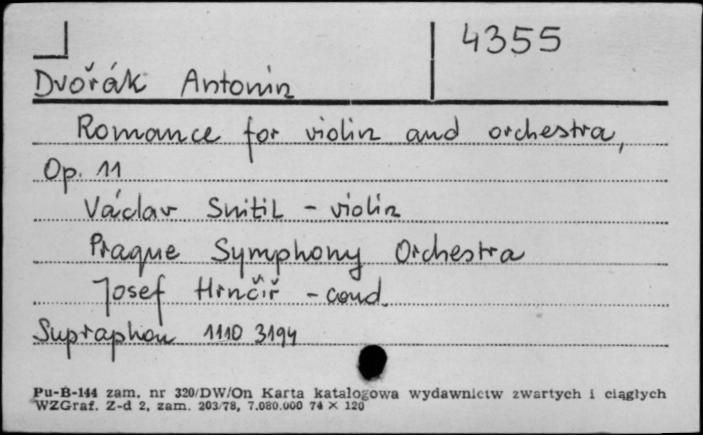 4355
Dvořák Antonin
Romance for violin and orchestra,
Op. 11
Václav Snitil - violin
Prague Symphony Orchestra
Josef Hrnčíř - cond.
Supraphon 1110 3194
Pu-B-144 zam. nr 320/DW/On Karta katalogowa wydawnictw zwartych i ciągłych
WZGraf. Z-d 2, zam. 203/78, 7.080.000 74 × 120